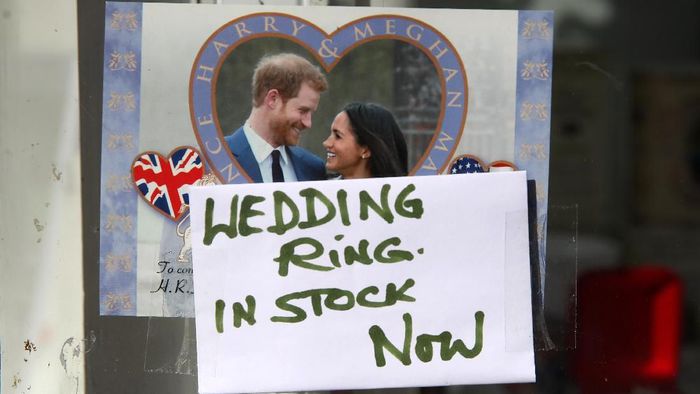 NCE HARRY & MEGHAN MA
To com
H.R.
WEDDING
RING.
IN STOCK
NOW